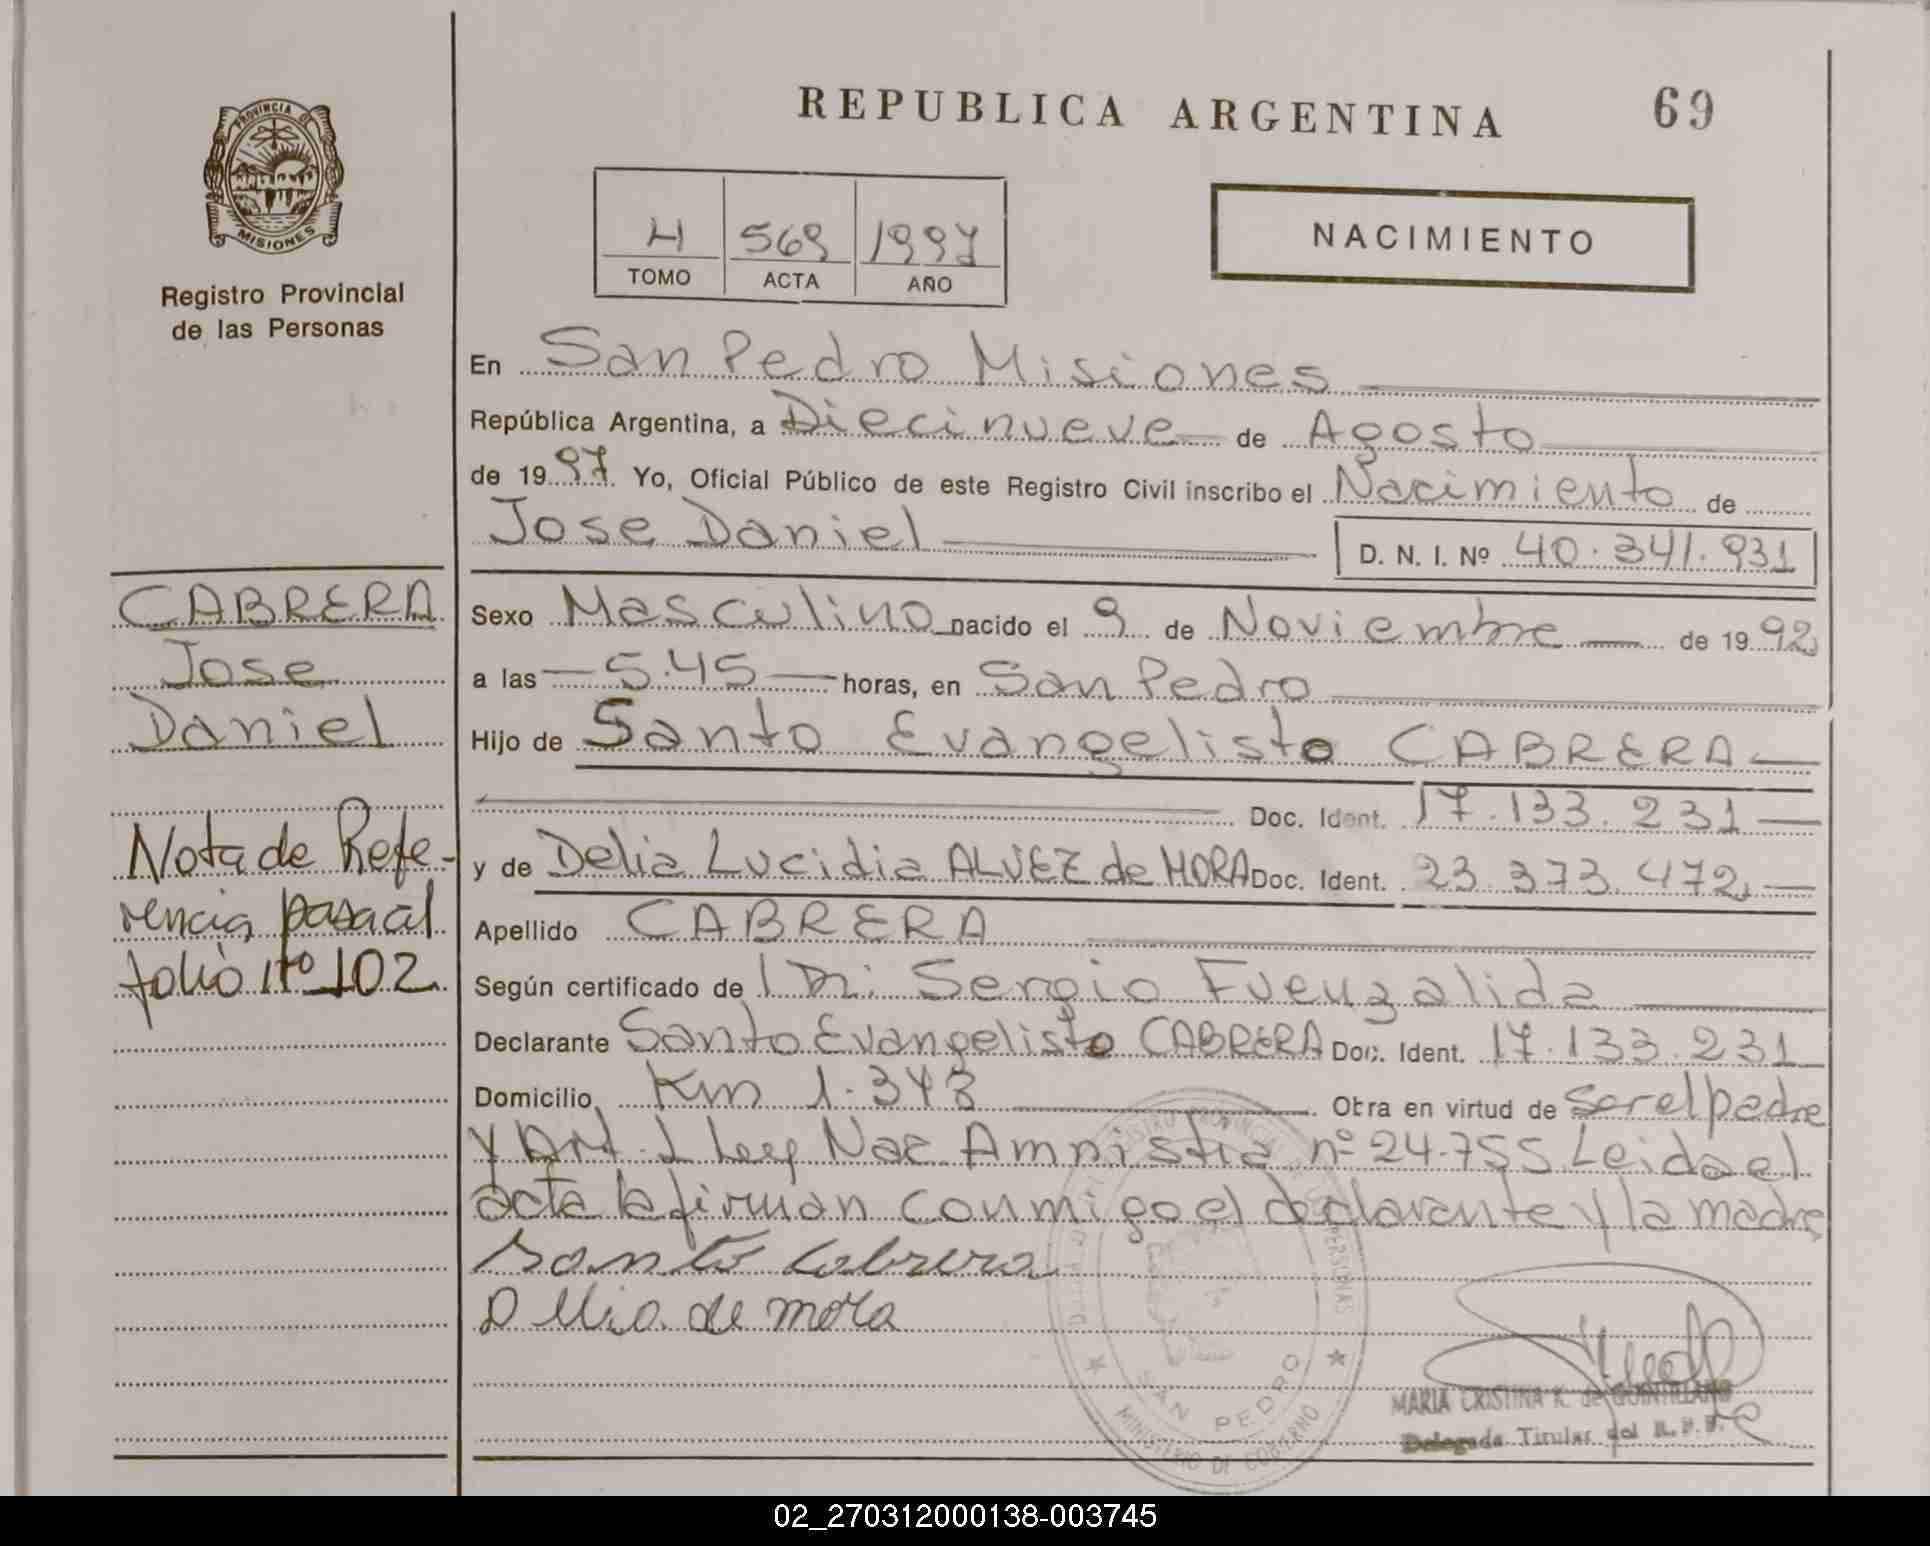 REPUBLICA ARGENTINA
69
PROVINCIA DE
MISIONES
Registro Provincial
de las Personas
4 569 1997
TOMO ACTA AÑO
NACIMIENTO
En San Pedro Misiones
República Argentina, a Diecinueve de Agosto
de 1997 Yo, Oficial Público de este Registro Civil inscribo el Nacimiento de
Jose Daniel D. N. I. Nº 40.341.931
CABRERA
Jose
Daniel
Nota de Refe-
rencia pasa al
folio Nº 102
Sexo Masculino nacido el 9 de Noviembre de 1992
a las 5.45 horas, en San Pedro
Hijo de Santo Evangelisto CABRERA
Doc. Ident. 17.133.231
y de Delia Lucidia ALVEZ de MORA Doc. Ident. 23.373.472
Apellido CABRERA
Según certificado de Dr. Sergio Fuenzalida
Declarante Santo Evangelisto CABRERA Doc. Ident. 17.133.231
Domicilio Km 1.343 Obra en virtud de Ser el padre
y Art. 1 Ley Nac Amnistia nº 24.755 Leida el
acta la firman conmigo el declarante y la madre
Santo Cabrera
Dellia de mora
REGISTRO PROVINCIAL DE LAS PERSONAS
SAN PEDRO
MINISTERIO DE GOBIERNO
MARIA CRISTINA K. de QUINTILLANO
Delegada Titular del R.P.P.
02_270312000138-003745